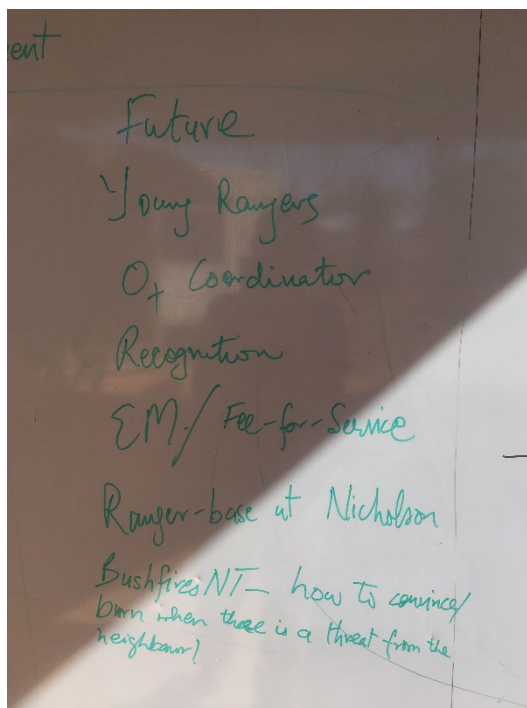 ent
Future
Young Rangers
O+ Coordinator
Recognition
EM/ Fee-for-Service
Ranger-base at Nicholson
Bushfires NT - how to convince/
burn when there is a threat from the
neighbour?